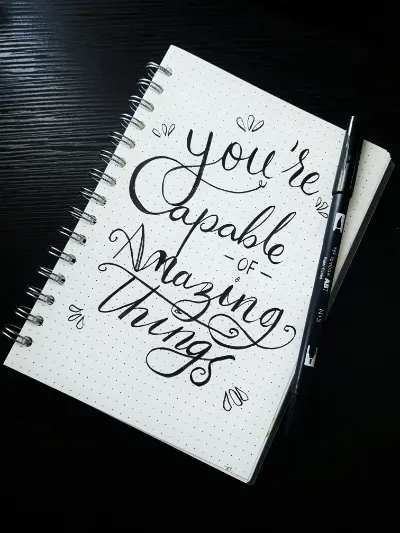 you're
Capable
- OF -
Amazing
things
ABT
N15